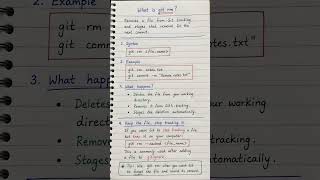 What is git rm?
Removes a file from Git tracking
and stages that removal for
the next commit.
1. Syntax
git rm <file_name>
2. Example
git rm notes.txt
git commit -m "Remove notes.txt"
3. What happens?
• Deletes the file from your working
directory.
• Removes it from Git's tracking.
• Stages the deletion automatically.
4. Keep the file, stop tracking it
If you want Git to stop tracking a file
but keep it on your computer:
git rm --cached <file_name>
This is commonly used after adding
a file to .gitignore.
Tip: Use git rm when you want Git
to forget the file and record its removal.
2. Example
git rm
git comm
otes.txt"
3. What happ
Deletes
ur working
direct
Remov
Stages
matically.